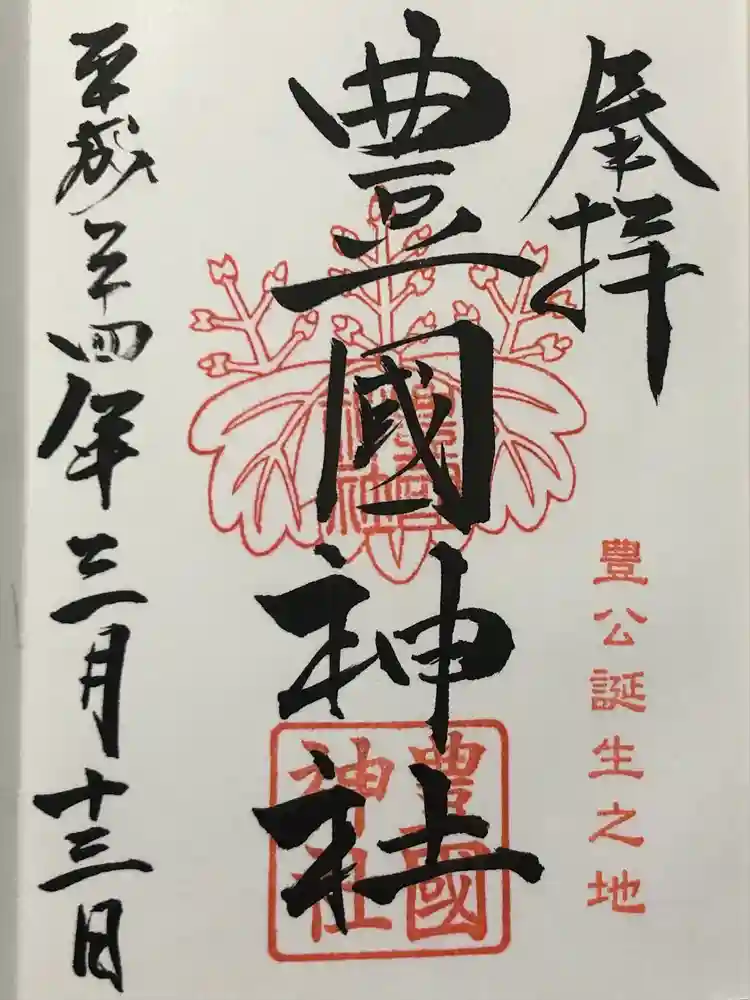 奉拝
豐公誕生之地
豊國神社
豐國神社
豐國神社
平成二十四年三月十三日